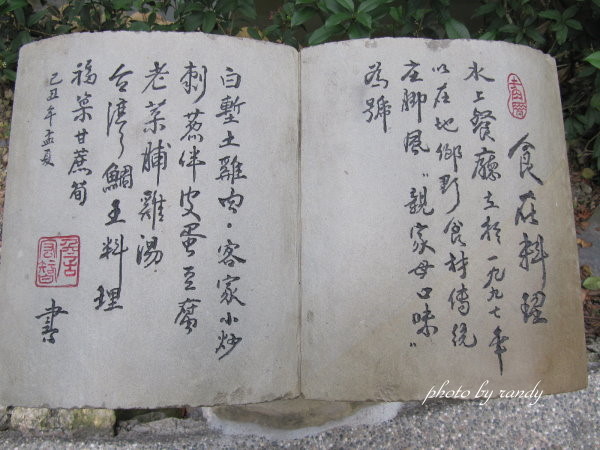 食在料理
水上餐廳立於一九九七年
以在地鄉野食材傳統
庄腳風"親家母口味"
為號
白墼土雞肉·客家小炒
刺蔥伴皮蛋豆腐
老菜脯雞湯
台灣鯛王料理
福菜甘蔗筍
己丑年孟夏
書
photo by randy